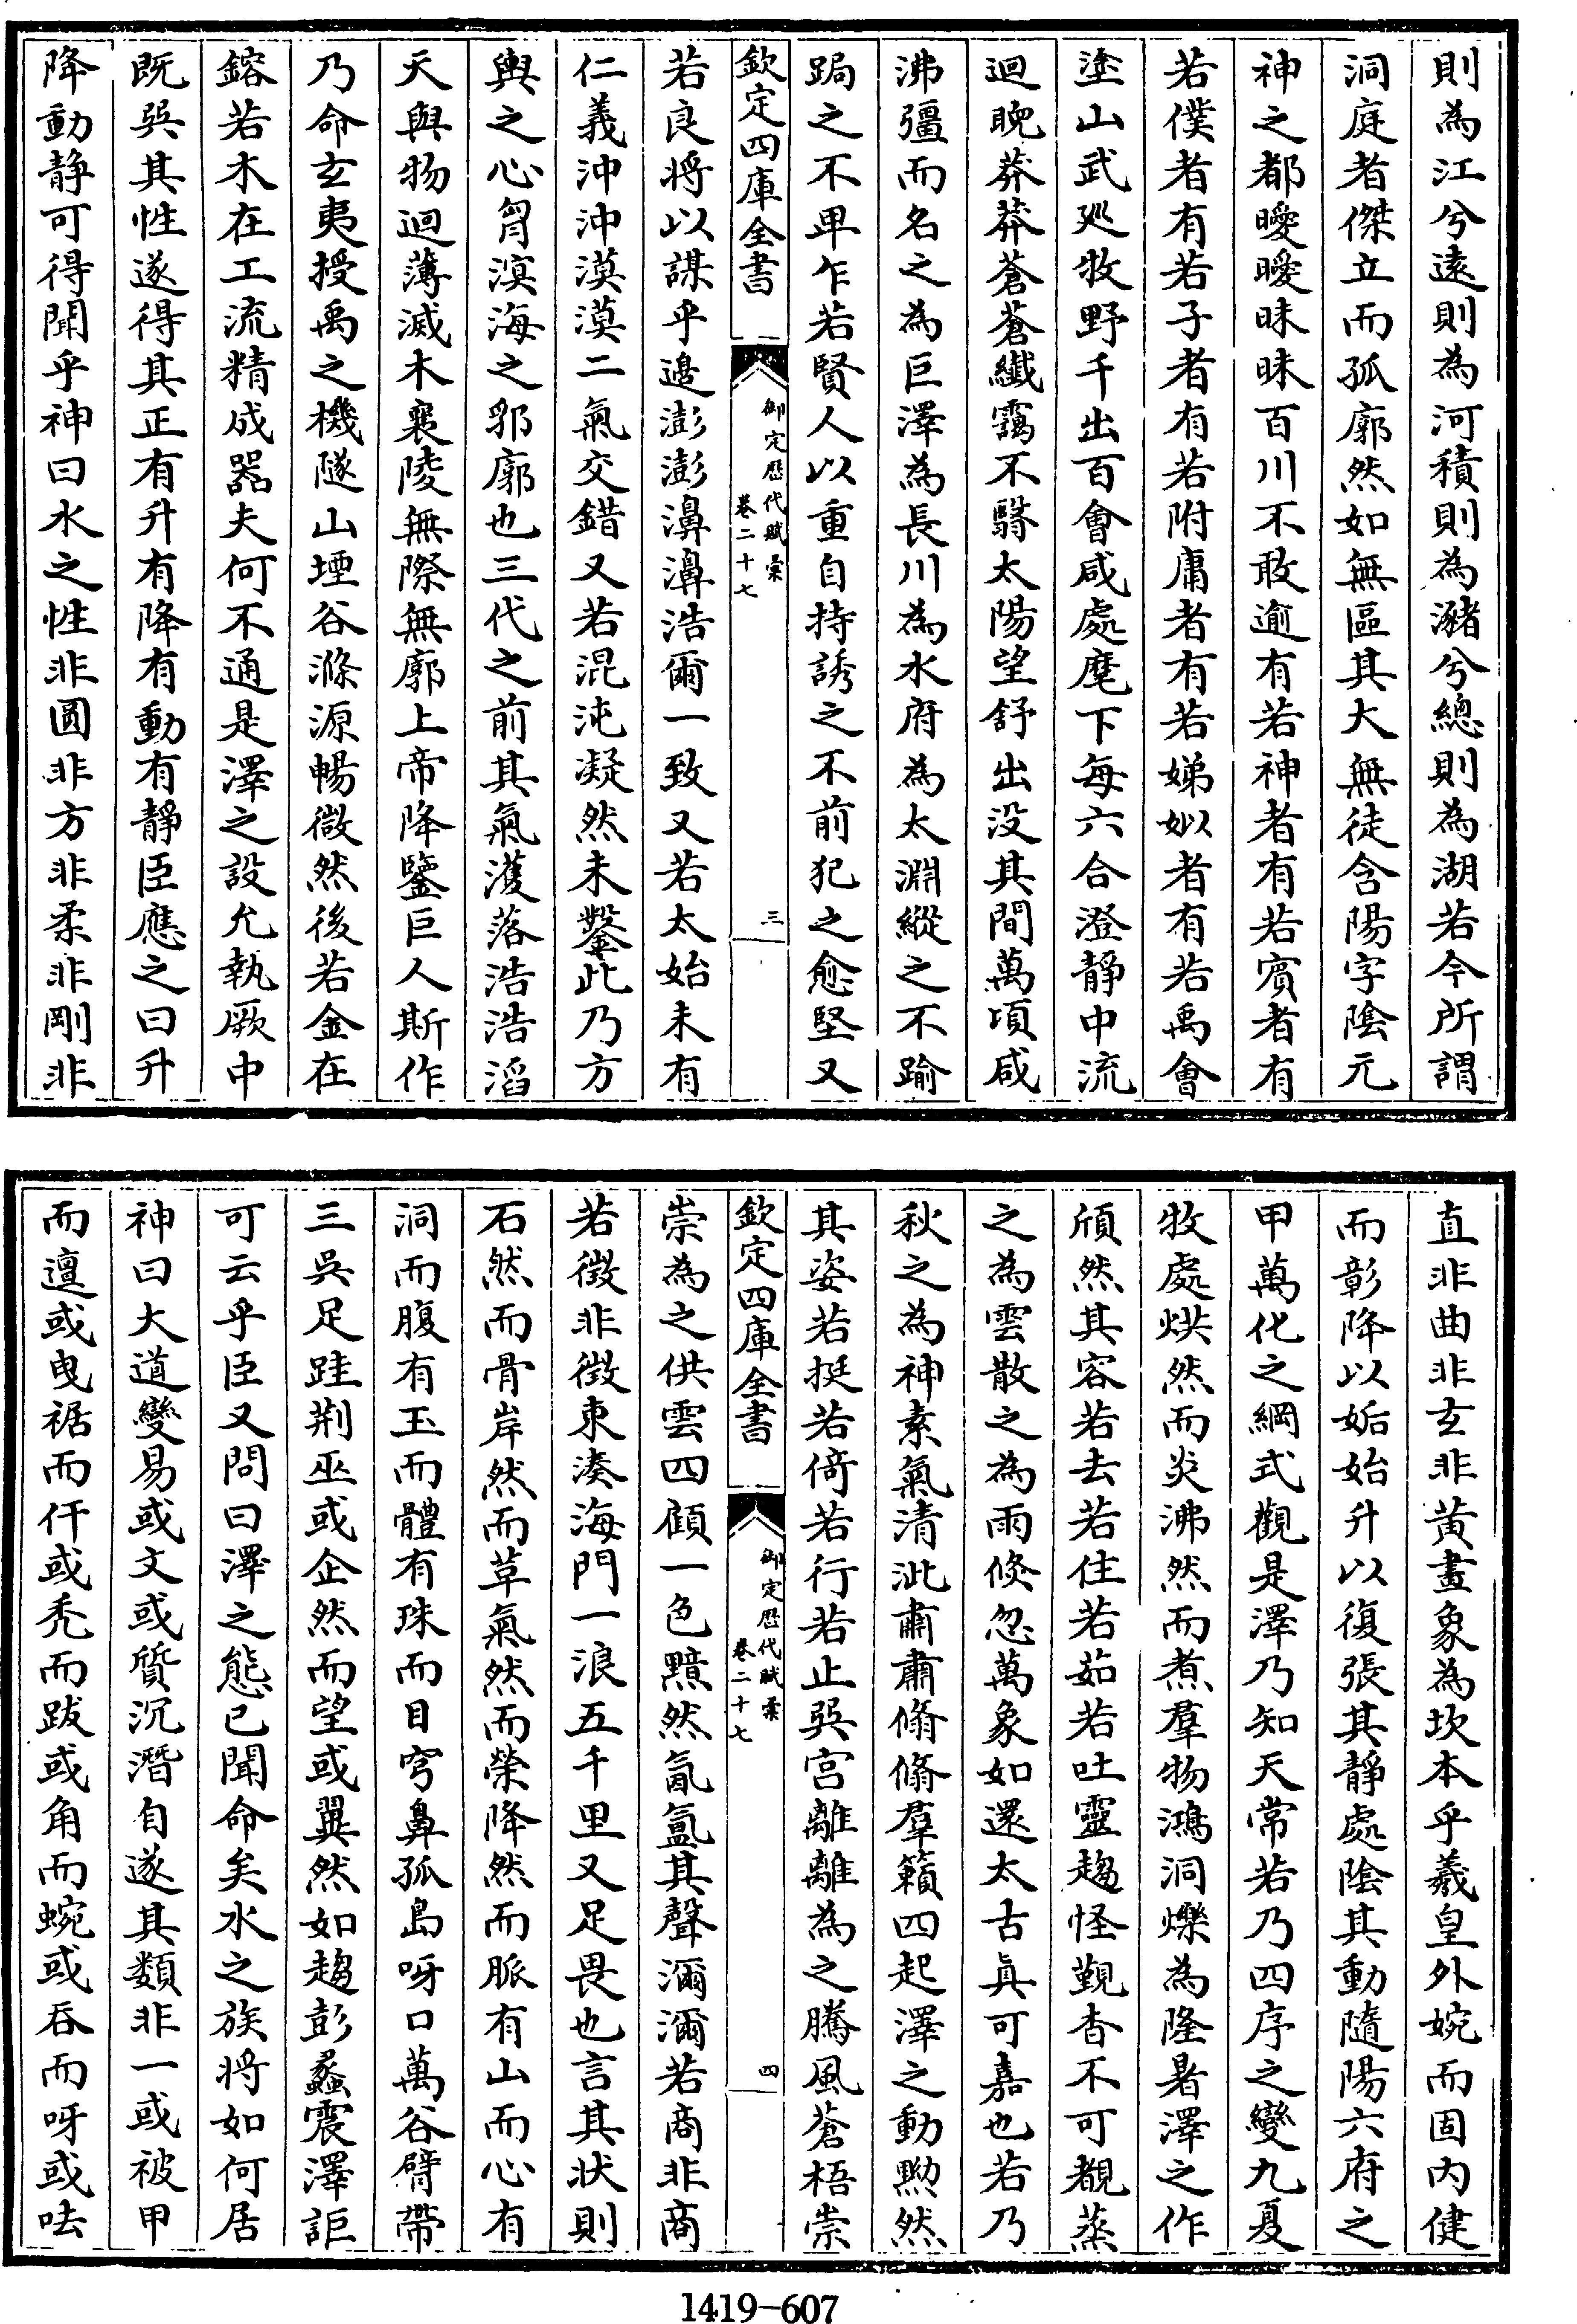 則為江兮遠則為河積則為瀦兮總則為湖若今所謂
洞庭者傑立而孤廓然如無區其大無徒含陽字陰元
神之都曖曖昧昧百川不敢逾有若神者有若賓者有
若僕者有若子者有若附庸者有若娣姒者有若禹會
塗山武巡牧野千出百會咸處麾下每六合澄靜中流
迴睕莽莽蒼蒼纖靄不翳太陽望舒出没其間萬頃咸
沸彊而名之為巨澤為長川為水府為太淵縱之不踰
跼之不卑乍若賢人以重自持誘之不前犯之愈堅又
欽定四庫全書
御定歷代賦彙
卷二十七
三
若良將以謀乎邉澎澎濞濞浩爾一致又若太始未有
仁義沖沖漠漠二氣交錯又若混沌凝然未鑿此乃方
輿之心胷溟海之郛廓也三代之前其氣濩落浩浩滔
天與物迴薄滅木襄陵無際無廓上帝降鑒巨人斯作
乃命玄夷授禹之機隧山堙谷滌源暢微然後若金在
鎔若木在工流精成器夫何不通是澤之設允執厥中
既巽其性遂得其正有升有降有動有靜臣應之曰升
降動靜可得聞乎神曰水之性非圓非方非柔非剛非
直非曲非玄非黄畫象為坎本乎羲皇外婉而固内健
而彰降以姤始升以復張其靜處陰其動隨陽六府之
甲萬化之綱式觀是澤乃知天常若乃四序之變九夏
牧處烘然而炎沸然而煮羣物鴻洞爍為隆暑澤之作
頎然其容若去若住若茹若吐靈趨怪覲杳不可覩蒸
之為雲散之為雨倐忽萬象如還太古真可嘉也若乃
秋之為神素氣清泚肅肅翛翛羣籟四起澤之動黝然
其姿若挺若倚若行若止巽宫離離為之騰風蒼梧崇
欽定四庫全書
御定歷代賦彙
卷二十七
四
崇為之供雲四顧一色黯然氤氲其聲瀰瀰若商非商
若徴非徴東湊海門一浪五千里又足畏也言其状則
石然而骨岸然而草氣然而榮降然而脈有山而心有
洞而腹有玉而體有珠而目穹鼻孤島呀口萬谷臂帶
三吳足跬荆巫或企然而望或翼然如趨彭蠡震澤詎
可云乎臣又問曰澤之態已聞命矣水之族将如何居
神曰大道變易或文或質沉潛自遂其類非一或被甲
而邅或曳裾而仟或秃而跋或角而蜿或吞而呀或呿
1419-607